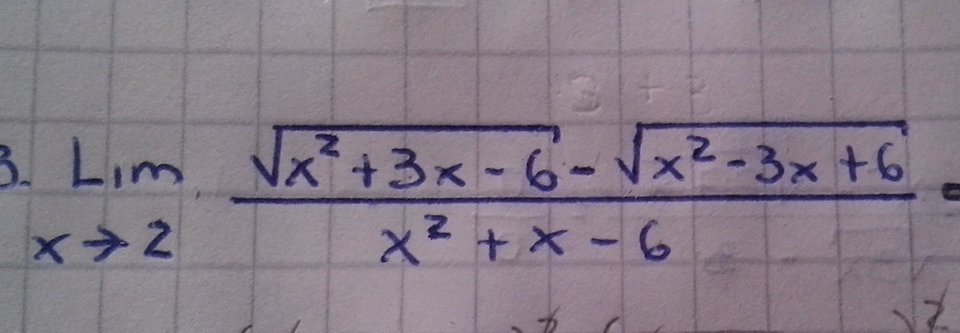 3. Lim √(x² + 3x - 6) - √(x² - 3x + 6) =
x → 2 x² + x - 6